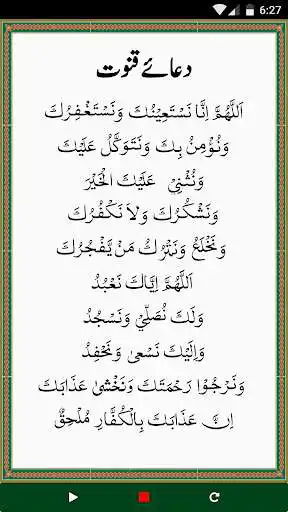 6:27
دعائے قنوت
اَللَّهُمَّ اِنَّا نَسْتَعِيْنُكَ وَنَسْتَغْفِرُكَ
وَنُؤْمِنُ بِكَ وَنَتَوَكَّلُ عَلَيْكَ
وَنُثْنِيْ عَلَيْكَ الْخَيْرَ
وَنَشْكُرُكَ وَلاَ نَكْفُرُكَ
وَنَخْلَعُ وَنَتْرُكُ مَنْ يَّفْجُرُكَ
اَللَّهُمَّ اِيَّاكَ نَعْبُدُ
وَلَكَ نُصَلِّيْ وَنَسْجُدُ
وَاِلَيْكَ نَسْعٰى وَنَحْفِدُ
وَنَرْجُوْا رَحْمَتَكَ وَنَخْشٰى عَذَابَكَ
اِنَّ عَذَابَكَ بِالْكُفَّارِ مُلْحِقٌ